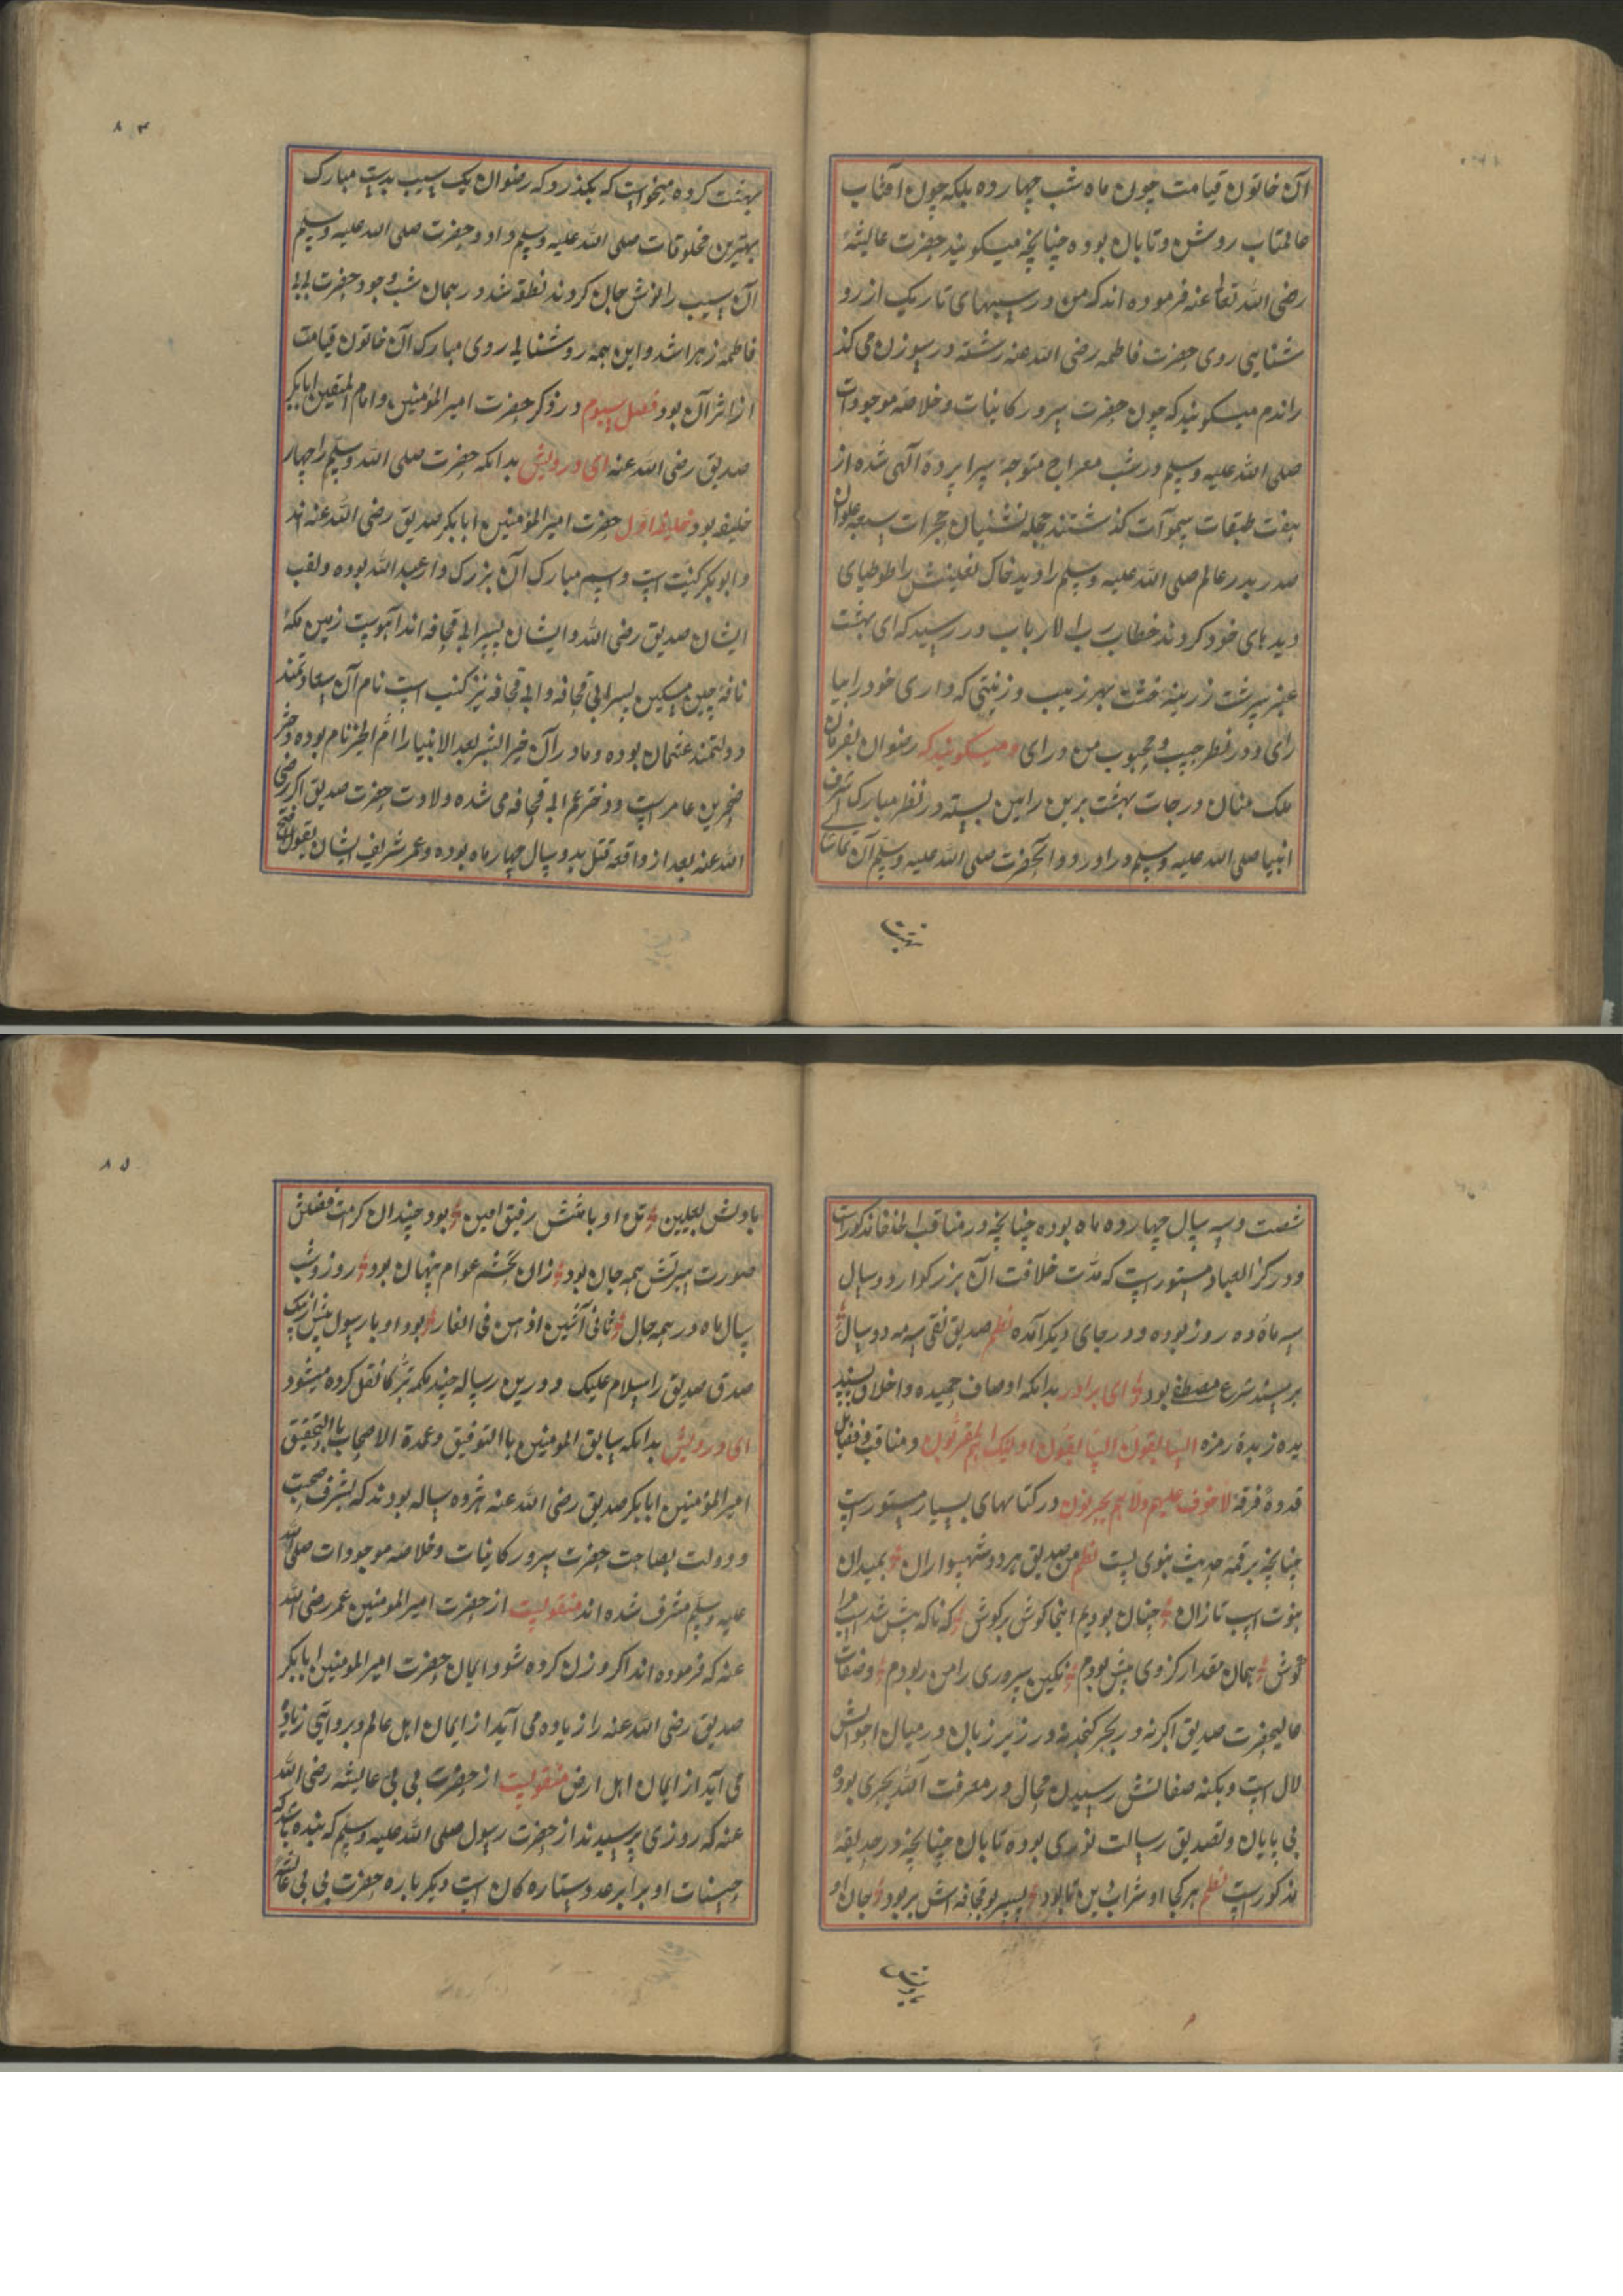 آن خاتون قیامت چون ماه شب چهارده بلکه چون آفتاب
عالمتاب روشن و تابان بوده چنانچه میکویند حضرت عایشهٔ
رضی الله تعالی عنه فرموده اند که من در شبهای تاریک از رو
شنایی روی حضرت فاطمه رضی الله عنه رشته در سوزن می کذ
راندم میکویند که چون حضرت سرور کاینات و خلاصه موجودات
صلی الله علیه وسلم در شب معراج متوجهٔ سراپردهٔ آلهی شده از
هفت طبقات سموآت کذشتند حجله نشنیان حجرات سبعه علوان
صدر بدر عالم صلی الله علیه وسلم را دید خاک نعلینش را طوطیای
دیدهای خود کردند خطاب رب الارباب در رسید که ای بهشت
عنبر سرشت زرینه خشت بهر زیب و زینتی که داری خود را بیا
رای و در نظر حبیب و محبوب من در ای میکویند که رضوان بفرمان
ملک منان درجات بهشت برین را من بسته در نظر مبارک اشرف
انبیا صلی الله علیه وسلم در اورد و انحضرت صلی الله علیه وسلم آن تماشا
بهشت
۸۴
بهشت کرده میخواست که بکذرد که رضوان یک سیب بدست مبارک
بهترین مخلوقات صلی الله علیه وسلم داد و حضرت صلی الله علیه وسلم
آن سیب را نوش جان کردند نطفه شد در همان شب وجود حضرت بی بی
فاطمه زهرا شد و این همه روشنایی روی مبارک آن خاتون قیامت
از اثر آن بود فصل سیوم در ذکر حضرت امیر المؤمنین و امام المتقین ابابکر
صدیق رضی الله عنه ای درویش بدانکه حضرت صلی الله وسلم را چهار
خلیفه بود خلیفه اول حضرت امیر المؤمنین ابابکر صدیق رضی الله عنه اند
و ابوبکر کنیت است و اسم مبارک آن بزرک وار عبد الله بوده و لقب
ایشان صدیق رضی الله و ایشان پسر ابی قحافه اند آهوست زمین مکهٔ
نافه چین مسکین پسر ابی قحافه و ابی قحافه نیز کنیت است نام آن سعادتمند
و دولتمند عثمان بوده و مادر آن خیر البشر بعد الانبیا را ام الخیر نام بوده دختر
ضخرین عامر است و دختر عم ابی قحافه می شده ولادت حضرت صدیق اکبر رضی
الله عنه بعد از واقعه قتل بدو سال چهار ماه بوده و عمر شریف ایشان بقول
شصت و سه سال چهارده ماه بوده چنانچه در مناقب الخلفا مذکورات
و در کنز العباد مستور است که مدت خلافت آن بزرکوار دو سال
سه ماه و ده روز بوده و در جای دیکر آمده نظم صدیق نقی سه مه دو سال
بر مسند شرع مصطفی بود ای برادر بدانکه اوصاف حمیده و اخلاق پسند
یده زبدهٔ زمره السابقون السابقون اولیک المقربون و مناقب و فضایل
قدوهٔ فرقهٔ لاخوف علیهم ولاهم یحزنون در کتابهای بسیار مستور است
چنانچه بر قمهٔ حدیث نبوی است نظم من صدیق هر دو شهسواران بمیدان
نبوت اسب تازان چنان بودیم اینجا کوش بر کوش که ناکه پیش شد اسب مرا
کوش همان مقدار کز وی پیش بودم نکین سروری را من ربودم وصفات
عالیحضرت صدیق اکبر نه در بحر کنجد نه در زیر زبان در میان اخوانش
لال است و بکنه صفاتش رسیدن محال در معرفت آلله بحری بوده
بی پایان و تصدیق رسالت نوری بوده تابان چنانچه در حدیقهٔ
مذکور است نظم هر کجا او شراب بود پسر بوقحافه اش بر بود جان او
۸۵
با دلش تن او با تنش رفیق امین بود چندان کرامت و فضلش
صورت سرتش همه جان بود زان بچشم عوام پنهان بود روز و شب
سال ماه در همه حال ثانی آثنین اذهمن فی الغار بود او با رسول
صدق صدیق را سلام علیک و درین رساله چند کلمه تبرکا نقل کرده میشود
ای درویش بدانکه سابق المومنین باالتوفیق و عمدة الاصحاب باالتحقیق
امیر المؤمنین ابابکر صدیق رضی الله عنه هژده ساله بودند که بشرف صحبت
و دولت بصاحبت حضرت سرور کاینات و خلاصه موجودات صلی الله
علیه وسلم مشرف شده اند منقولیست از حضرت امیر المومنین عمر رضی الله
عنه که فرموده اند اکر وزن کرده شود ایمان حضرت امیر المومنین ابابکر
صدیق رضی الله عنه را زیاده می آید از ایمان اهل عالم و بروایتی زیاده
می آید از ایمان اهل ارض منقولیست از حضرت بی بی عایشه رضی الله
عنه که روزی پرسیدند از حضرت رسول صلی الله علیه وسلم که بنده باشد که
حسنات او برابر عدد ستاره کان است دیکر باره حضرت بی بی عایشه